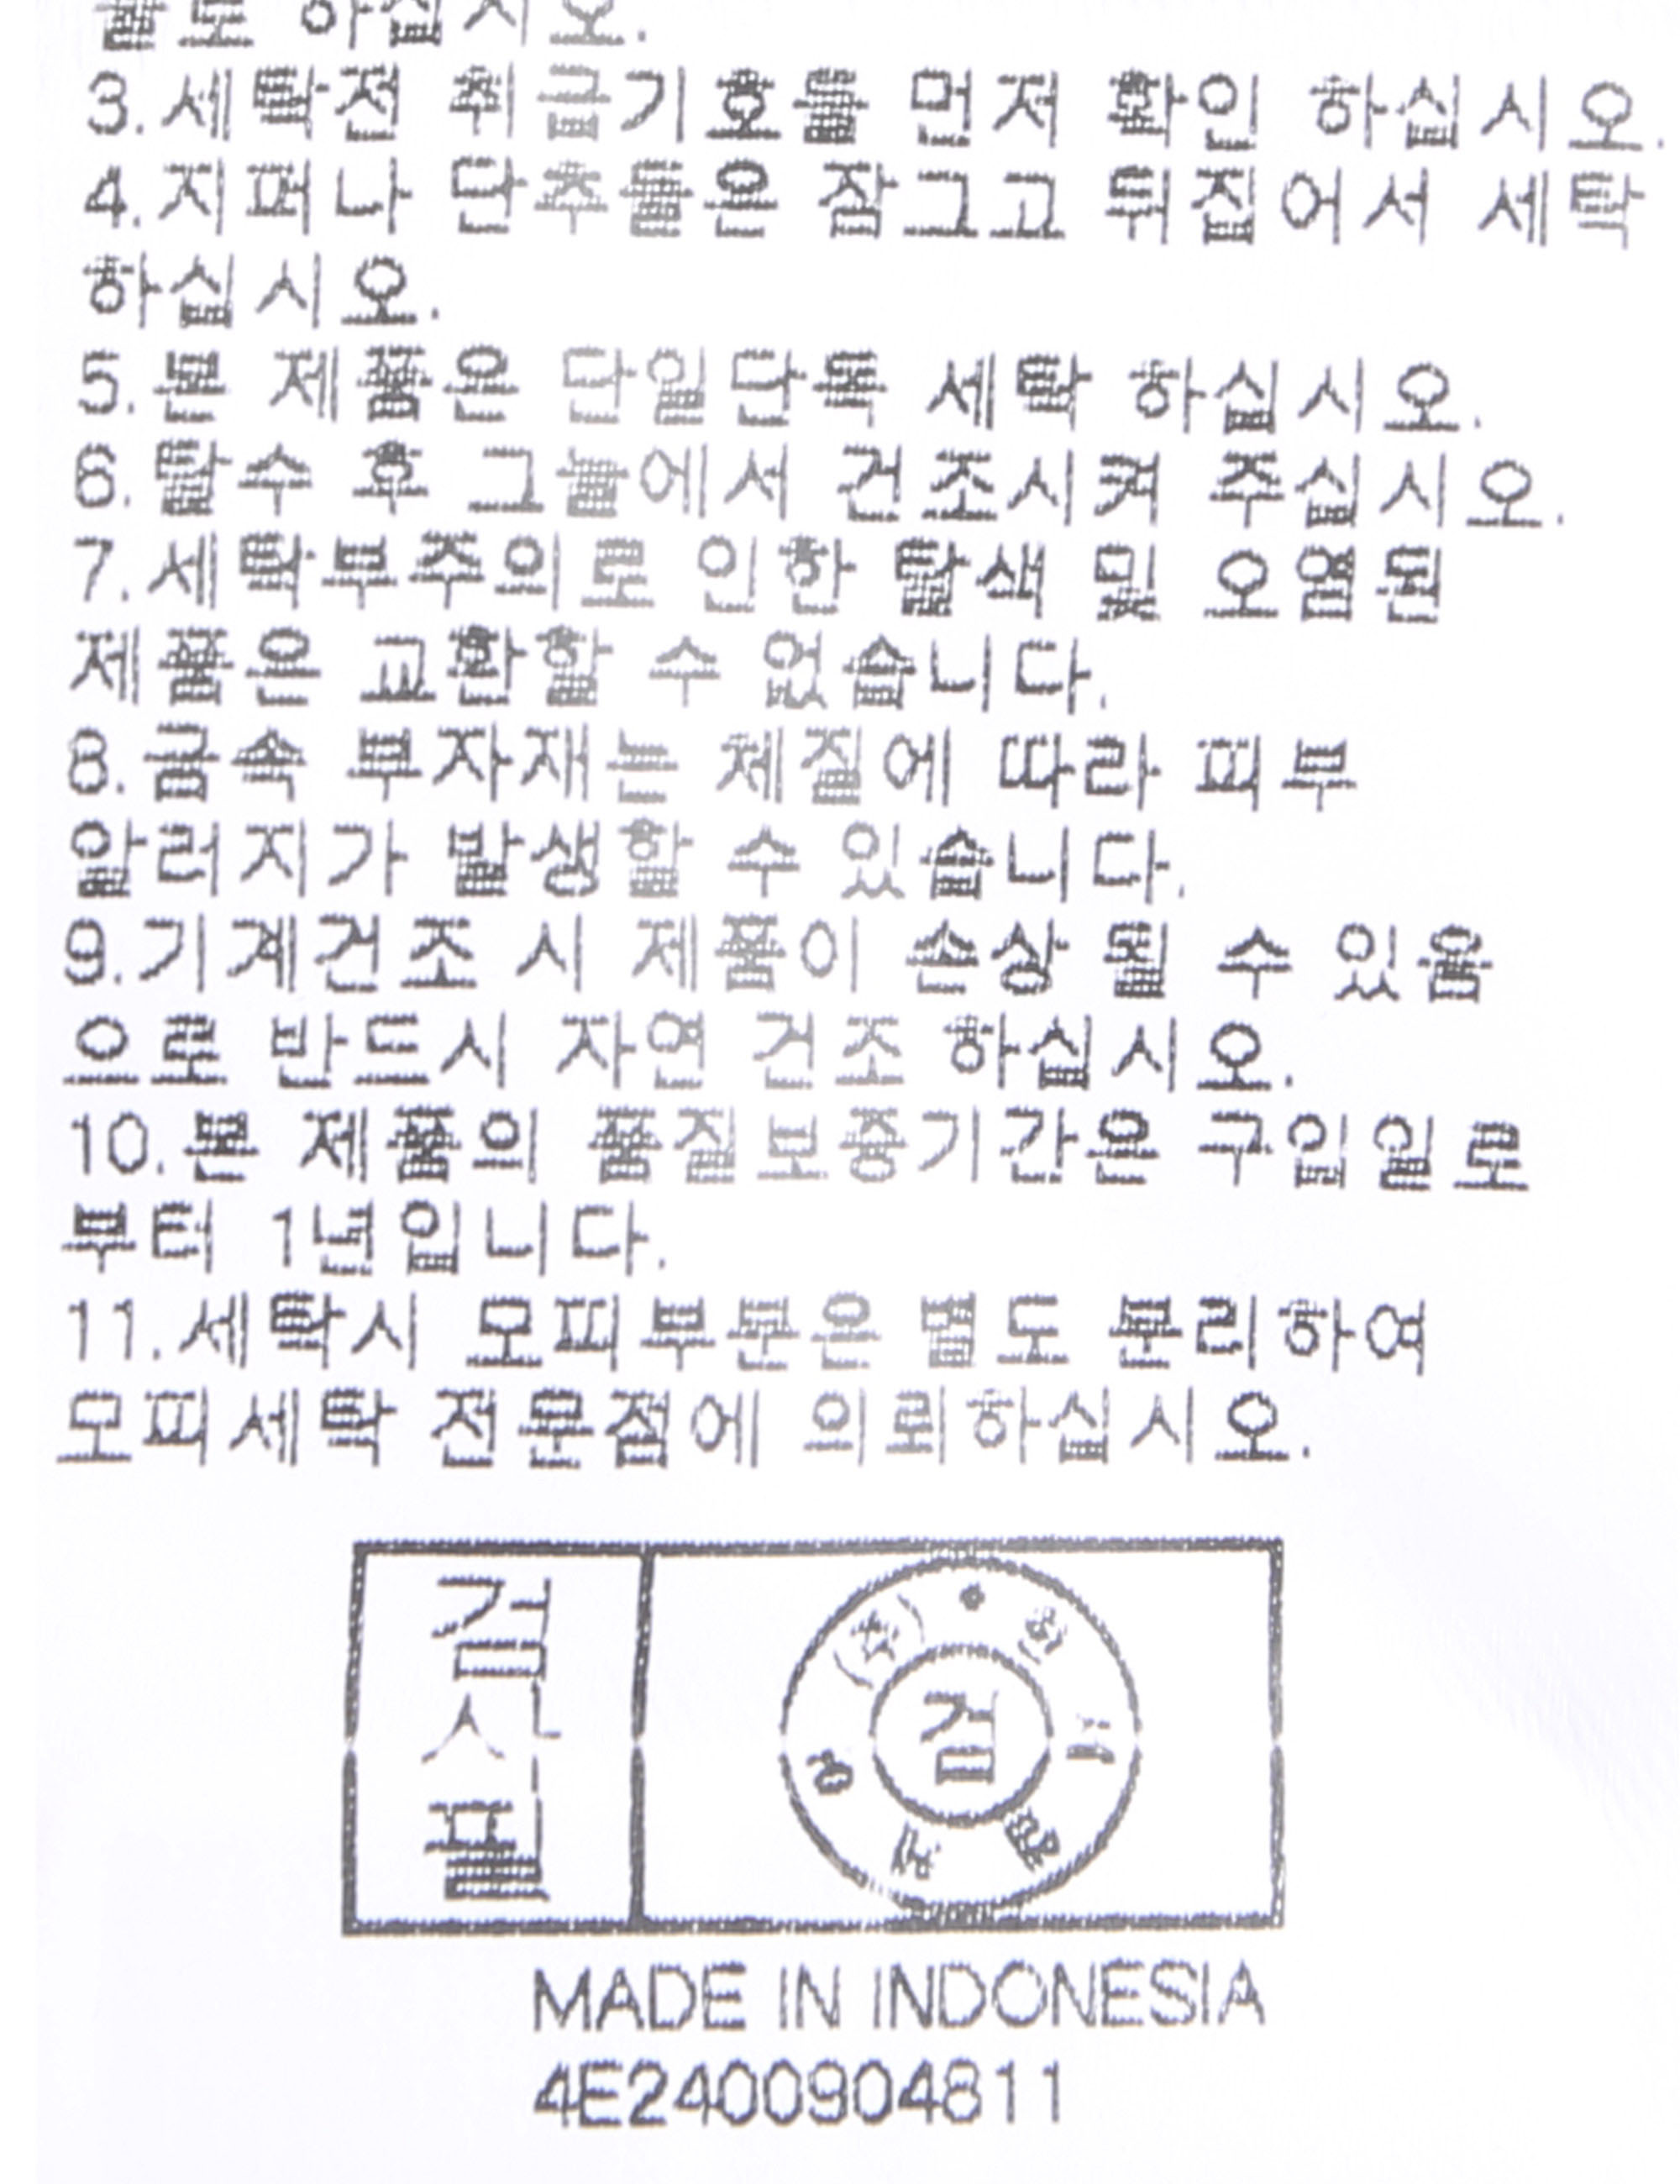 하십시오.
3.세탁전 취급기호를 먼저 확인 하십시오.
4.지퍼나 단추들은 잠그고 뒤집어서 세탁
하십시오.
5.본 제품은 단일단독 세탁 하십시오.
6.탈수 후 그늘에서 건조시켜 주십시오.
7.세탁부주의로 인한 탈색 및 오염된
제품은 교환할 수 없습니다.
8.금속 부자재는 체질에 따라 피부
알러지가 발생할 수 있습니다.
9.기계건조 시 제품이 손상 될 수 있음
으로 반드시 자연 건조 하십시오.
10.본 제품의 품질보증기간은 구입일로
부터 1년입니다.
11.세탁시 모피부분은 별도 분리하여
모피세탁 전문점에 의뢰하십시오.
검사필
검
MADE IN INDONESIA
4E2400904811